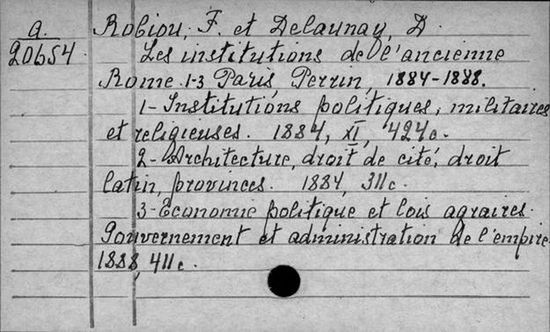 a. Robiou, F. et Delaunay, D.
20654 Les institutions de l'ancienne
Rome. 1-3 Paris Perrin, 1884-1888.
1-Institutions politiques, militaires
et religieuses. 1884, XI, 424c.
2-Architecture, droit de cité, droit
latin, provinces. 1884, 311c.
3-Economie politique et lois agraires.
Gouvernement et administration de l'empire.
1888, 411c.